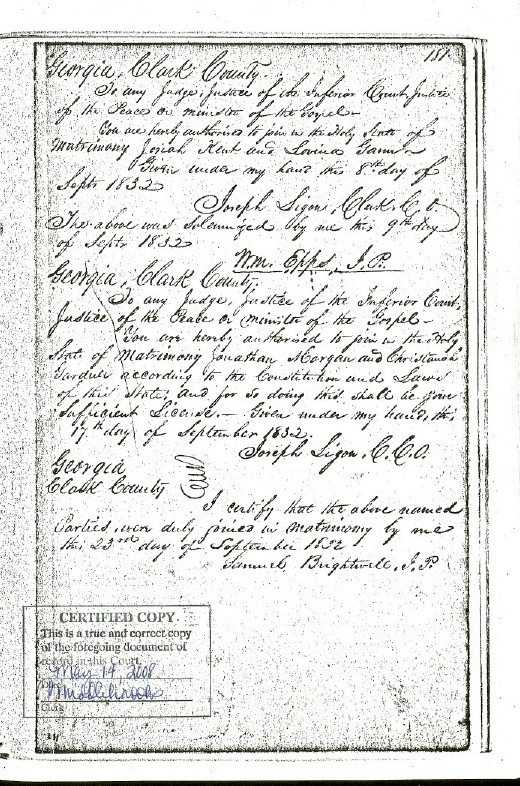 181
Georgia, Clark County.
To any Judge, Justice of the Inferior Court Justice
of the Peace or minister of the Gospel-
You are hereby authorised to join in the Holy State of
Matrimony Josiah Kent and Lovina
Given under my hand this 8th day of
Septr 1832
Joseph Ligon, Clark, C. O.
The above was Solemnized by me this 9th day
of Septr 1832
Wm. Epps, J.P.
Georgia, Clark County,
To any Judge, Justice of the Inferior Court,
Justice of the Peace or minister of the Gospel-
You are hereby authorised to join in the Holy
State of Matrimony Jonathan Morgan and
according to the Constitution and Laws
of this State, and for so doing this shall be your
Sufficient License. - Given under my hand, this
17th day of September 1832.
Joseph Ligon, C.C.O.
Georgia
Clark County
I certify that the above named
Parties, were duly joined in Matrimony by me
this 23rd day of September 1832
Samuel Brightwell, J.P.
CERTIFIED COPY
This is a true and correct copy
of the foregoing document of
record in this Court.
May 14, 2008
Clerk